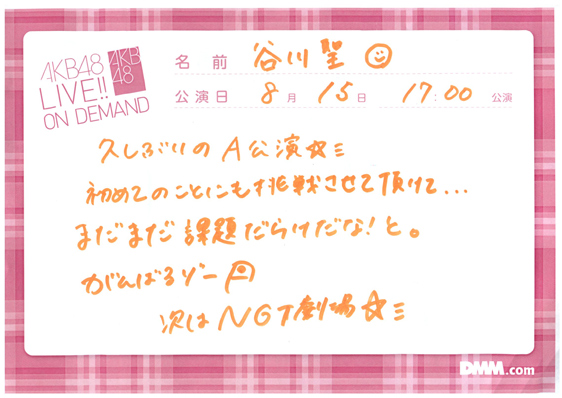 AKB48
LIVE!!
ON DEMAND
AKB
48
名前 谷川聖
公演日 8月 15日 17:00 公演
久しぶりのA公演☆ミ
初めてのことにも挑戦させて頂けて...
まだまだ課題だらけだな!と。
がんばるゾー
次はNGT劇場☆ミ
DMM.com